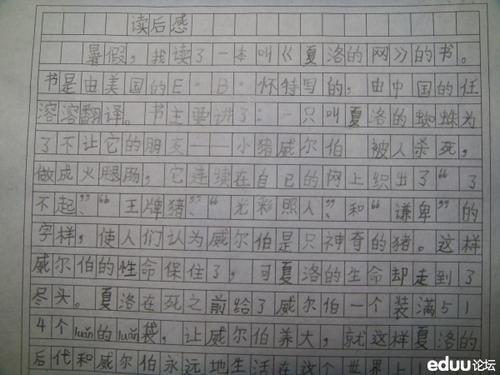 读后感
暑假,我读了一本叫《夏洛的网》的书。
书是由美国的E·B·怀特写的,由中国的任
溶溶翻译。书主要讲了:一只叫夏洛的蜘蛛为
了不让它的朋友——小猪威尔伯 被人杀死,
做成火腿肠,它连续在自己的网上织出了“了
不起”、“王牌猪”、“光彩照人”、和“谦卑”的
字样,使人们认为威尔伯是只神奇的猪。这样
威尔伯的性命保住了,可夏洛的生命却走到了
尽头。夏洛在死之前给了威尔伯一个装满51
4个luǎn的luǎn袋,让威尔伯养大,就这样夏洛的
后代和威尔伯永远地生活在这个世界上
eduu论坛